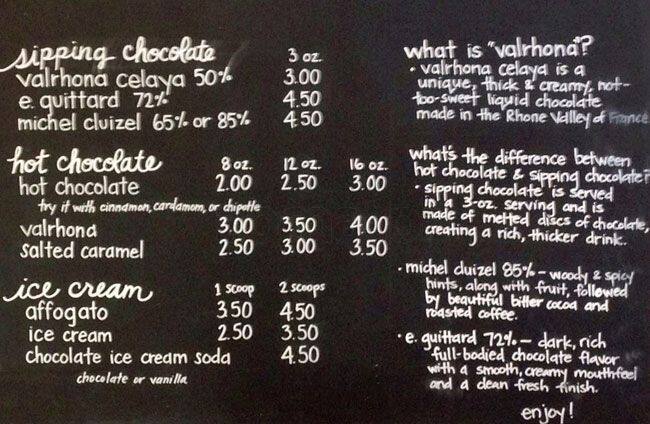 sipping chocolate 3 oz.
valrhona celaya 50% 3.00
e. guittard 72% 4.50
michel cluizel 65% or 85% 4.50
hot chocolate 8 oz. 12 oz. 16 oz.
hot chocolate 2.00 2.50 3.00
try it with cinnamon, cardamom, or chipotle
valrhona 3.00 3.50 4.00
salted caramel 2.50 3.00 3.50
ice cream 1 scoop 2 scoops
affogato 3.50 4.50
ice cream 2.50 3.50
chocolate ice cream soda 4.50
chocolate or vanilla
what is "valrhona"?
• valrhona celaya is a
unique, thick & creamy, not-
too-sweet liquid chocolate
made in the Rhone Valley of France
what's the difference between
hot chocolate & sipping chocolate?
• sipping chocolate is served
in a 3-oz. serving and is
made of melted discs of chocolate,
creating a rich, thicker drink.
• michel cluizel 85% – woody & spicy
hints, along with fruit, followed
by beautiful bitter cocoa and
roasted coffee.
• e. guittard 72% – dark, rich
full-bodied chocolate flavor
with a smooth, creamy mouthfeel
and a clean fresh finish.
enjoy!